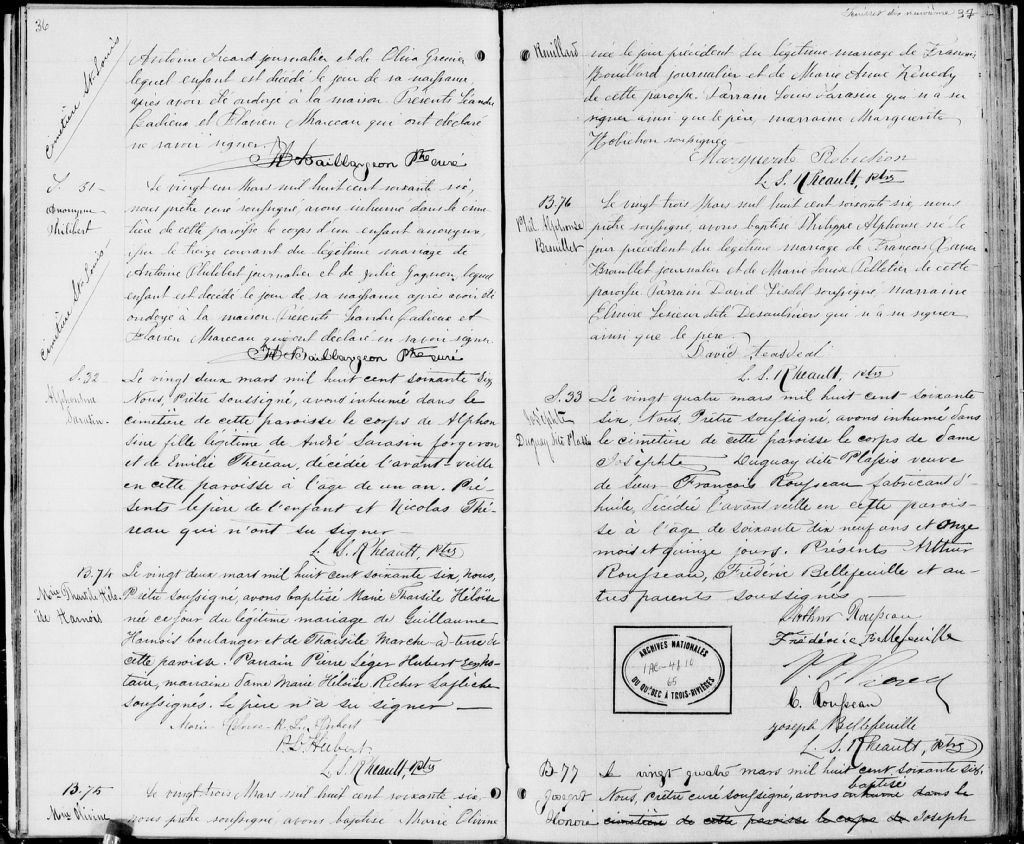 36
Cimetière St. Louis
Antoine Icard journalier et de Oliva Grenier
lequel enfant est décédé le jour de sa naissance
après avoir été ondoyé à la maison. Présents Léandre
Cadieux et Flavien Marceau qui ont déclaré
ne savoir signer.
Baillargeon Ptre curé
S. 51
Anonyme
Philibert
Cimetière St. Louis
Le vingt un Mars mil huit cent soixante six,
nous prêtre curé soussigné, avons inhumé dans le cime
tière de cette paroisse le corps d'un enfant anonyme
le treize courant du légitime mariage de
Antoine Philibert journalier et de Julie Gagnon, lequel
enfant est décédé le jour de sa naissance après avoir été
ondoyé à la maison. Présents Léandre Cadieux et
Flavien Marceau qui ont déclaré ne savoir signer.
Baillargeon Ptre curé
S. 32
Alphonsine
Sarasin.
Le vingt deux mars mil huit cent soixante six
Nous, Prêtre soussigné, avons inhumé dans le
cimetière de cette paroisse le corps de Alphon
sine fille légitime de André Sarasin forgeron
et de Emilie Théreau, décédée l'avant-veille
en cette paroisse à l'âge de un an. Pré-
sents le père de l'enfant et Nicolas Thé-
reau qui n'ont su signer
L. S. Rheault, Ptre
B. 74
Mie Tharsile Héloï
se Harnois
Le vingt deux mars mil huit cent soixante six, nous,
Prêtre soussigné, avons baptisé Marie Tharsile Héloïse
née ce jour du légitime mariage de Guillaume
Harnois boulanger et de Tharsile Marche-à-terre de
cette paroisse. Parrain Pierre Léger Hubert Ecr no
taire, marraine Dame Marie Héloïse Richer Laflèche
soussignés. Le père n'a su signer —
Marie Héloise R. L. Hubert
P. L. Hubert
L. S. Rheault, Ptre
B. 75
Mie Olivine
Le vingt trois Mars mil huit cent soixante six,
nous prêtre soussigné, avons baptisé Marie Olivine
Feuillet dix neuvième 37
née le jour précédent du légitime mariage de François
Bouillard journalier et de Marie Anne Kénedy
de cette paroisse. Parrain Louis Parasin qui n'a su
signer ainsi que le père, marraine Marguerite
Robichon soussignée
Marguerite Robichon
L. S. Rheault, Ptre
B. 76
Phil. Alphonse
Brouillet
Le vingt trois Mars mil huit cent soixante six, nous
prêtre soussigné, avons baptisé Philippe Alphonse né le
jour précédent du légitime mariage de François Xavier
Brouillet journalier et de Marie Louise Pelletier de cette
paroisse. Parrain David soussigné, marraine
Elmire Lesieur dite Desaulniers qui n'a su signer
ainsi que le père.
David Teasdeal
L. S. Rheault, Ptre
S. 33
Josephte
Duguay dite Plassis
Le vingt quatre mars mil huit cent soixante
six, Nous, Prêtre soussigné, avons inhumé dans
le cimetière de cette paroisse le corps de Dame
Josephte Duguay dite Plassis veuve
de Sieur François Rousseau fabricant d'
huile, décédée l'avant veille en cette parois-
se à l'âge de soixante dix neuf ans et onze
mois et quinze jours. Présents Arthur
Rousseau, Frédéric Bellefeuille et au-
tres parents soussignés —
Arthur Rousseau
Frédéric Bellefeuille
C. Rousseau
Joseph Bellefeuille
L. S. Rheault, Ptre
ARCHIVES NATIONALES
65
DU QUÉBEC À TROIS-RIVIÈRES
B-77
Joseph
Honoré
Le vingt quatre mars mil huit cent soixante six,
baptisé
Nous, Prêtre curé soussigné, avons inhumé dans le
cimetière de cette paroisse le corps de Joseph